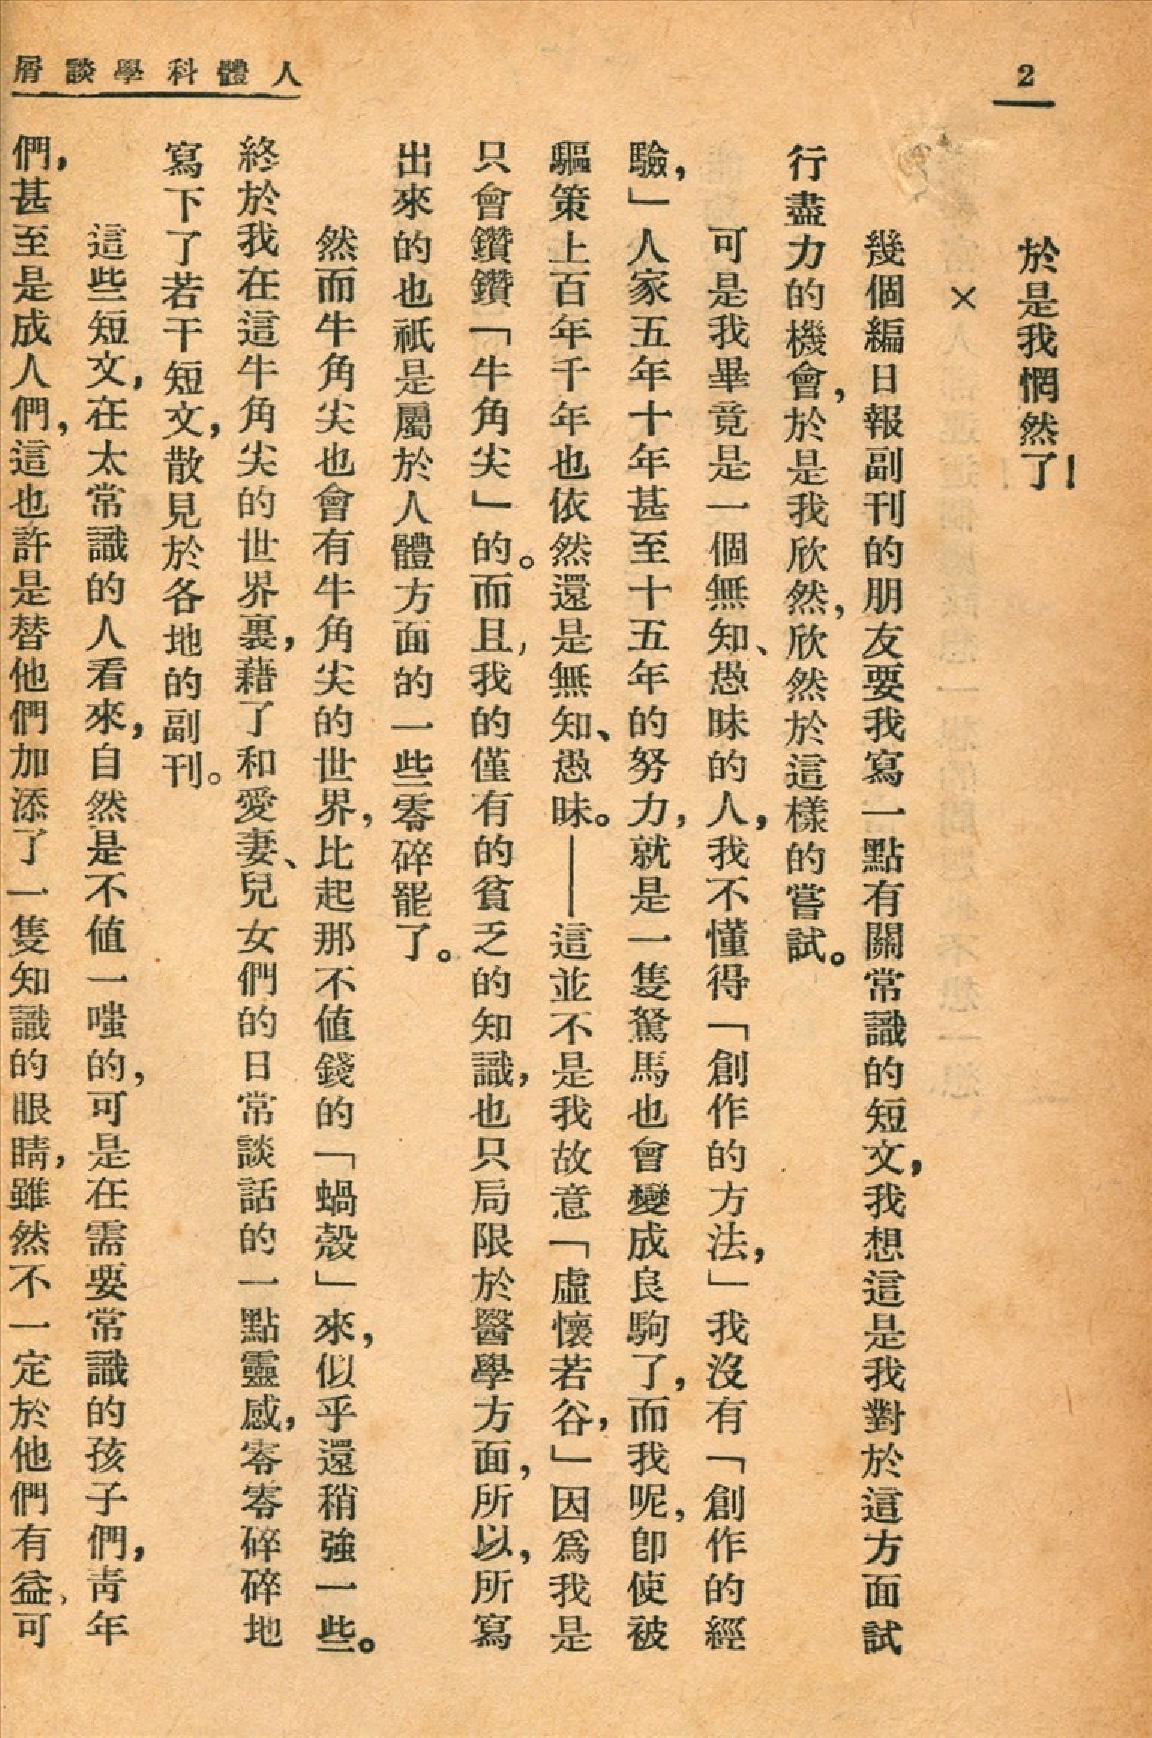 2
人體科學談屑
於是我惘然了！
×
幾個編日報副刊的朋友要我寫一點有關常識的短文，我想這是我對於這方面試
行盡力的機會，於是我欣然，欣然於這樣的嘗試。
可是我畢竟是一個無知、愚昧的人，我不懂得「創作的方法，」我沒有「創作的經
驗，」人家五年十年甚至十五年的努力，就是一隻駑馬也會變成良駒了，而我呢，卽使被
驅策上百年千年也依然還是無知、愚昧。——這並不是我故意「虛懷若谷，」因爲我是
只會鑽鑽「牛角尖」的。而且，我的僅有的貧乏的知識，也只局限於醫學方面，所以，所寫
出來的也祇是屬於人體方面的一些零碎罷了。
然而牛角尖也會有牛角尖的世界，比起那不值錢的「蝸殼」來，似乎還稍強一些。
終於我在這牛角尖的世界裏，藉了和愛妻、兒女們的日常談話的一點靈感，零零碎碎地
寫下了若干短文，散見於各地的副刊。
這些短文，在太常識的人看來，自然是不値一嗤的，可是在需要常識的孩子們，靑年
們，甚至是成人們，這也許是替他們加添了一隻知識的眼睛，雖然不一定於他們有益，可